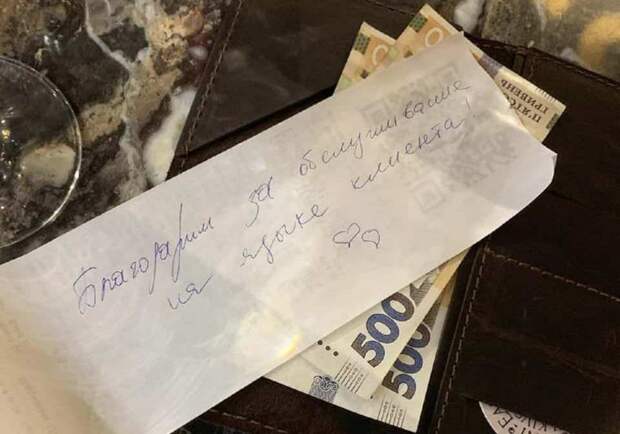 Благодарим за обслуживание
на языке клиента!
500
500
П'ЯТСО
ГРИВЕНЬ